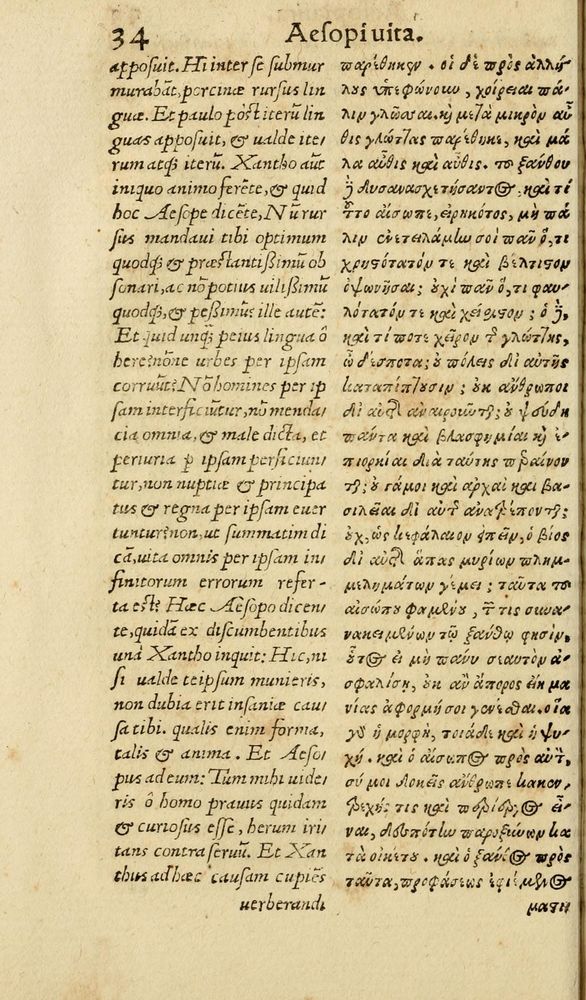 34 Aesopi uita.
apposuit. Hi inter se submur
murabāt, porcinæ rursus lin
guæ. Et paulo pòst iterū lin
guas apposuit, & ualde ite/
rum atq; iterū. Xantho aūt
iniquo animo ferēte, & quid
hoc Aesope dicēte, Nū rur
sus mandaui tibi optimum
quodq; & præstantißimū ob
sonari, ac non potius uilißimū
quodq;, & peßimū? ille aute:
Et quid unq̄ peius lingua ô
here? nōne urbes per ipsam
corruūt? Nō homines per ip
sam interficiūtur, nō menda/
cia omnia, & male dicta, et
periuria ꝑ ipsam perficiun/
tur, non nuptiæ & principa
tus & regna per ipsam euer
tuntur? non, ut summatim di
cā, uita omnis per ipsam in/
finitorum errorum refer-
ta est? Hæc Aesopo dicen/
te, quidā ex discumbentibus
unà Xantho inquit: Hic, ni
si ualde teipsum munieris,
non dubia erit insaniæ cau/
sa tibi. qualis enim forma,
talis & anima. Et Aeso/
pus ad eum: Tum mihi uide/
ris ô homo prauus quidam
& curiosus esse, herum iri/
tans contra seruū. Et Xan
thus ad hæc causam cupiēs
uerberandi
παρέθηκεν. οἱ δὲ πρὸς ἀλλή/
λους ὑπεφώνουν, χοίρειαι πά/
λιν γλῶσσαι. καὶ μετὰ μικρὸν αὖ
θις γλώττας παρέθηκε, καὶ μά
λα αὖθις καὶ αὖθις. τοῦ ξάνθου
δὲ δυσανασχετήσαντος, καὶ τί
τοῦτο αἴσωπε, εἰρηκότος, μὴ πά
λιν ἐνετειλάμην σοι πᾶν ὅ, τι
χρηστότατόν τε καὶ βέλτιστον
ὀψωνῆσαι; οὐχὶ πᾶν ὅ, τι φαυ
λότατόν τε καὶ χείριστον; ὁ δὲ,
καὶ τί ποτε χεῖρον τῆς γλώττης,
ὦ δέσποτα; οὐ πόλεις δι αὐτῆς
καταπίπτουσιν; οὐκ ἄνθρωποι
δι αὐτῆς ἀναιροῦνται; οὐ ψευδῆ
πάντα καὶ βλασφημίαι καὶ ἐ/
πιορκίαι διὰ ταύτης περαίνον
ται; οὐ γάμοι καὶ ἀρχαὶ καὶ βα/
σιλεῖαι δι αὐτῆς ἀνατρέπονται;
οὐχ, ὡς κεφάλαιον εἰπεῖν, ὁ βίος
δι αὐτῆς ἅπας μυρίων πλημ/
μελημάτων γέμει; ταῦτα τοῦ
αἰσώπου φαμένου, τῶν τις συνα/
νακειμένων τῷ ξάνθῳ φησὶν,
οὗτος εἰ μὴ πάνυ σιαυτὸν ἀ/
σφαλίσῃ, οὐκ ἂν ἄπορος εἴη μα
νίας ἀφορμή σοι γενέσθαι. οἵα
γὰρ ἡ μορφὴ, τοιάδε καὶ ἡ ψυ/
χή. καὶ ὁ αἴσωπος πρὸς αὐτὸν,
σύ μοι δοκεῖς ἄνθρωπε κακεν,
τρεχής τις καὶ περίεργος εἶ/
ναι, δεσπότην παροξύνων κα
τὰ οἰκέτου. καὶ ὁ ξάνθος πρὸς
ταῦτα, προφάσεως ἐφιέμενος
μαστι